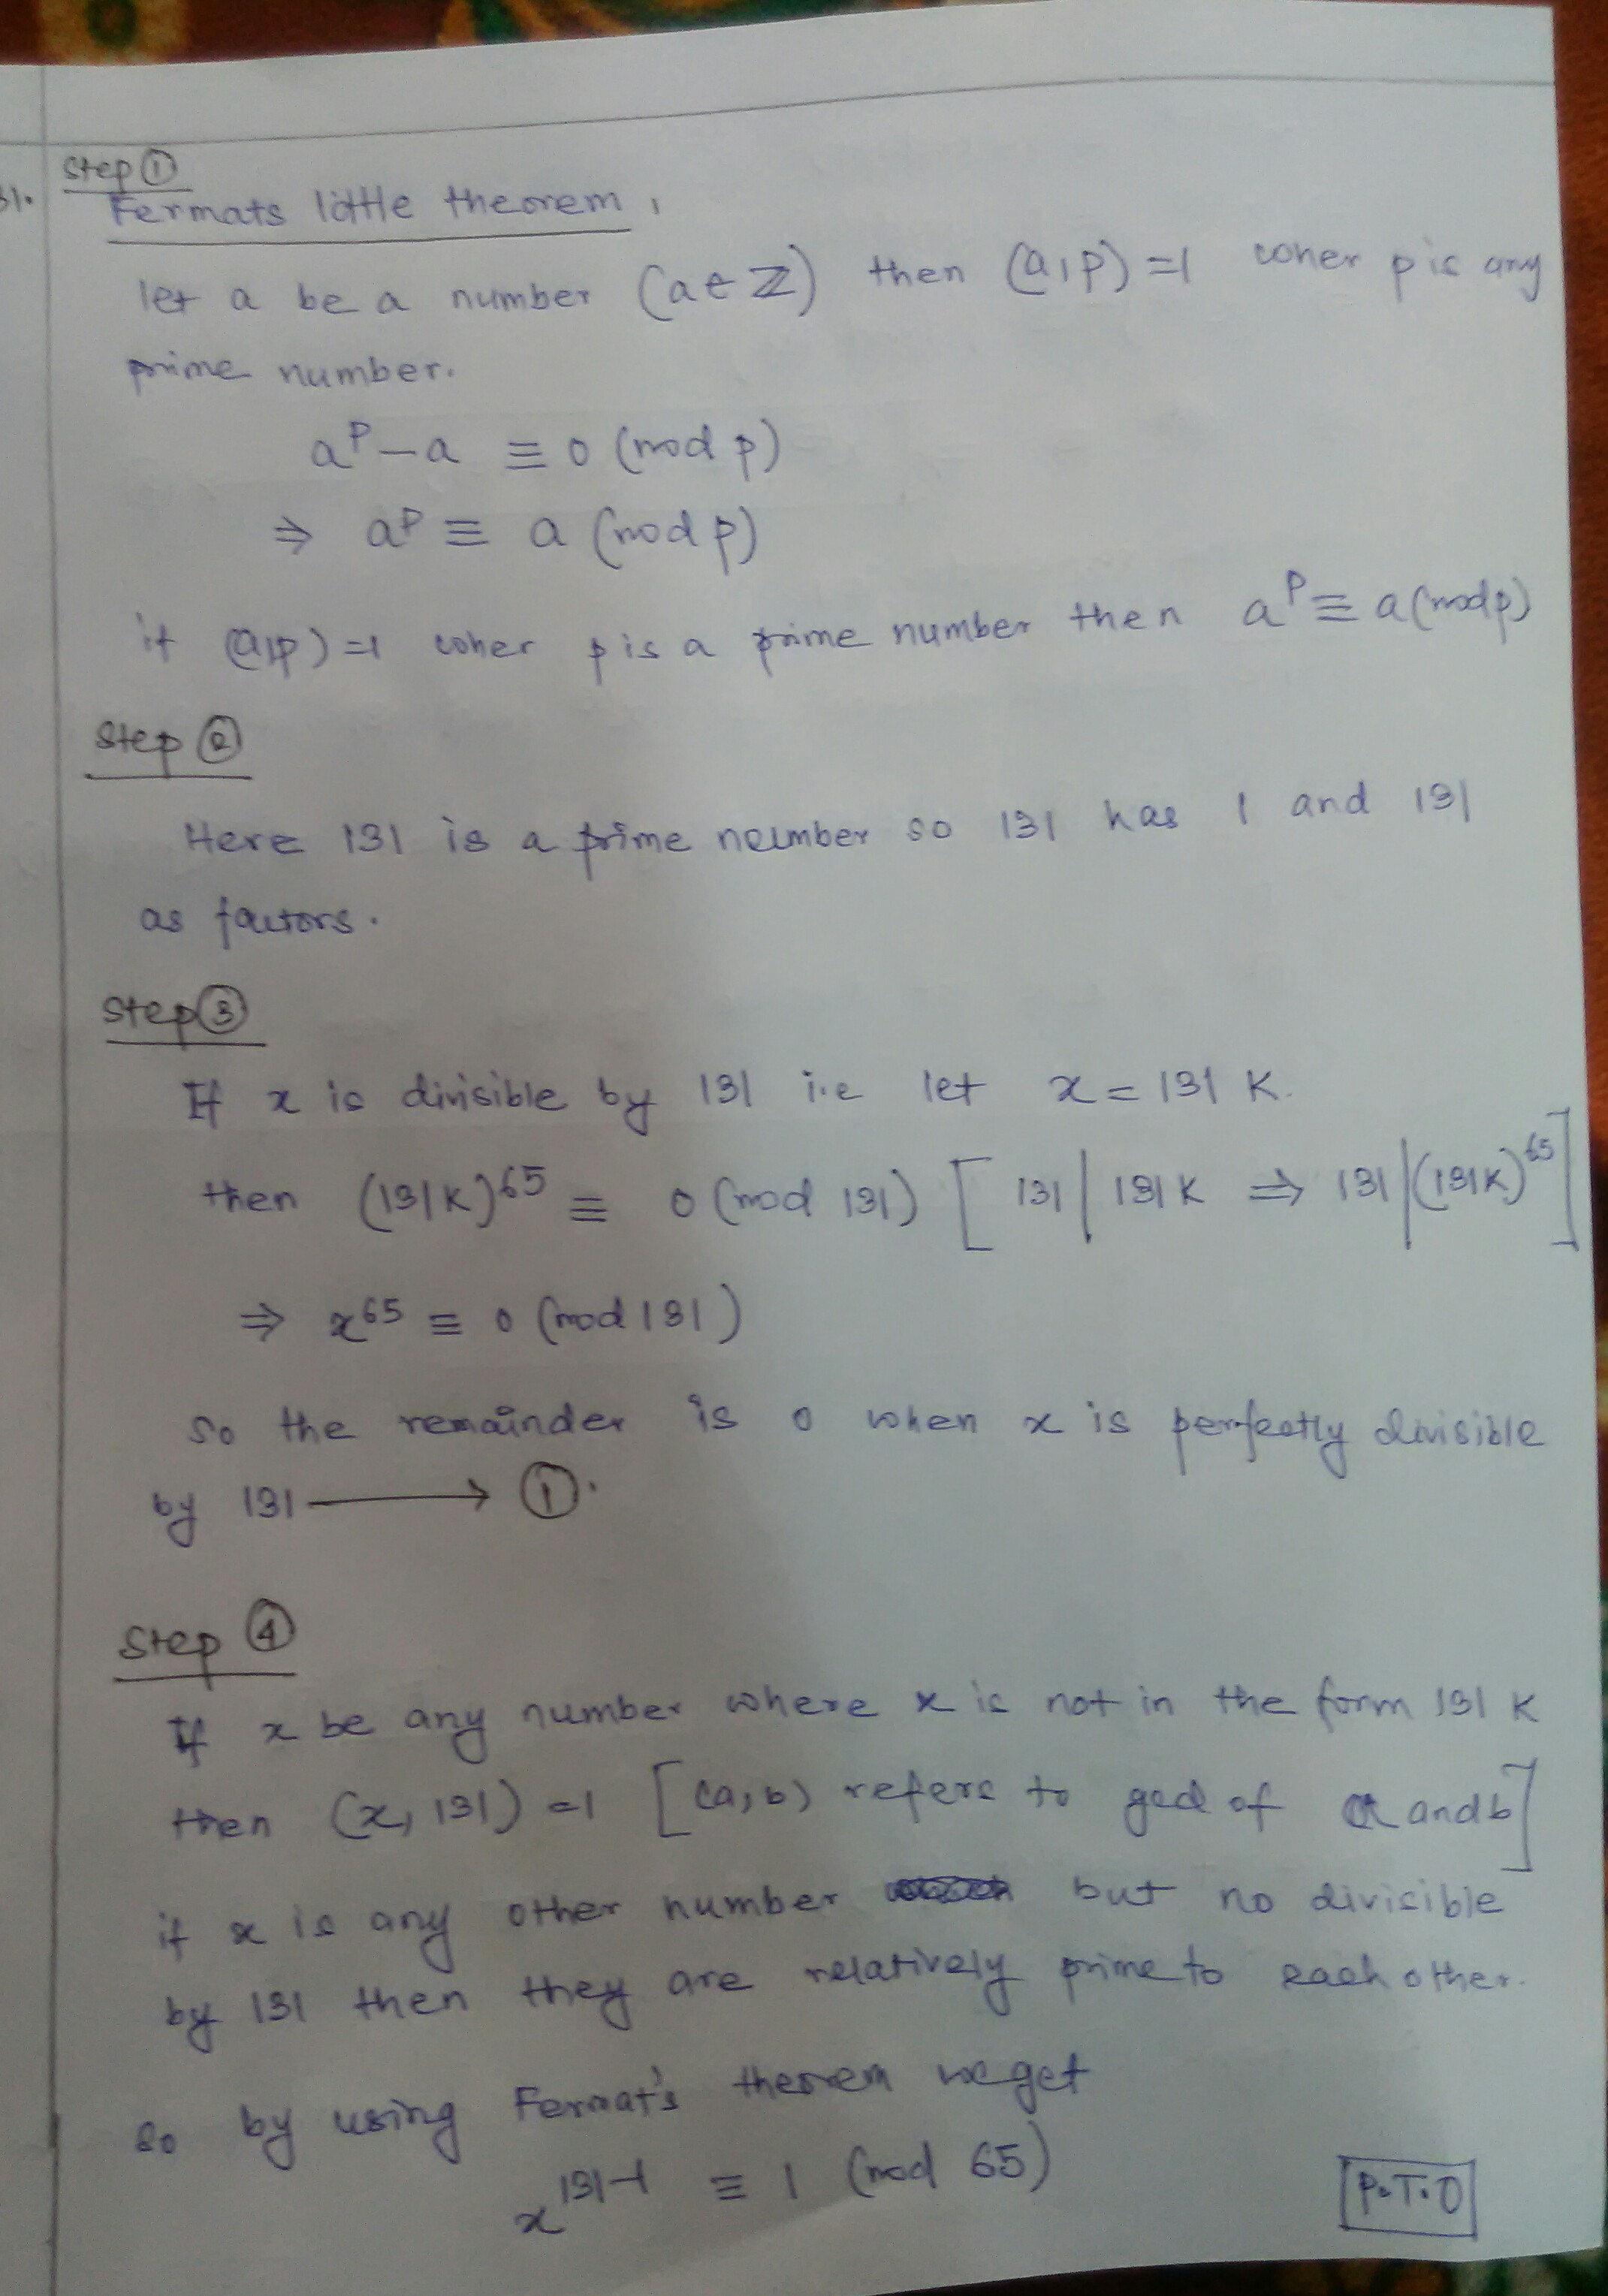 Step ①
31. Fermats little theorem,
let a be a number (a ∈ ℤ) then (a,p)=1 wher p is any
prime number.
a^p - a ≡ 0 (mod p)
⇒ a^p ≡ a (mod p)
if (a,p)=1 wher p is a prime number then a^p ≡ a (mod p)
Step ②
Here 131 is a prime number so 131 has 1 and 131
as factors.
Step ③
If x is divisible by 131 i.e let x = 131 K.
then (131K)^65 ≡ 0 (mod 131) [ 131 | 131 K ⇒ 131 | (131K)^65 ]
⇒ x^65 ≡ 0 (mod 131)
so the remainder is 0 when x is perfectly divisible
by 131 ⟶ ①.
Step ④
If x be any number where x is not in the form 131 K
then (x, 131) = 1 [ (a, b) refers to gcd of a and b ]
if x is any other number but no divisible
by 131 then they are relatively prime to each other.
so by using Fermat's theorem we get
x^131-1 ≡ 1 (mod 65)
P.T.O